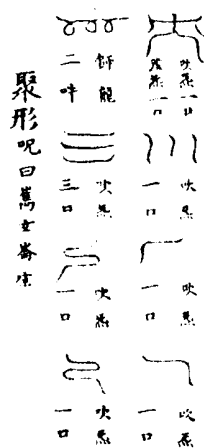 吹炁一口
炁一口
吹炁一口
吹炁一口
吹炁一口
龍二吽
吹炁三口
吹炁一口
吹炁一口
聚形呪曰